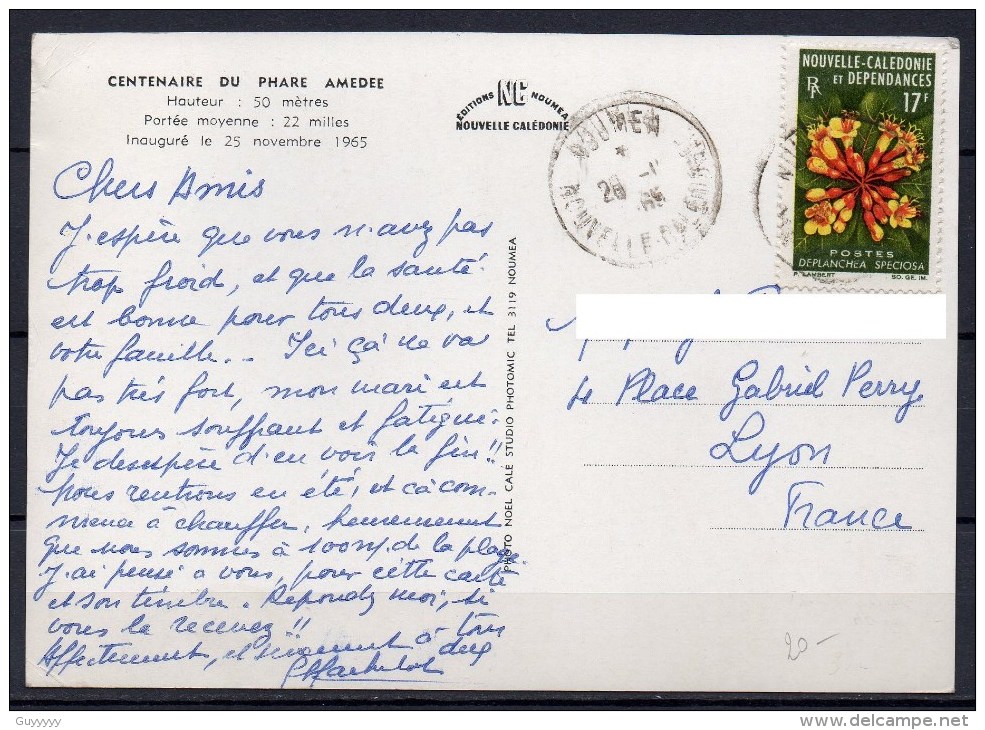 CENTENAIRE DU PHARE AMEDEE
Hauteur : 50 mètres
Portée moyenne : 22 milles
Inauguré le 25 novembre 1965
EDITIONS NC NOUMEA
NOUVELLE CALÉDONIE
NOUMEA
NOUVELLE-CALÉDONIE
NOUVELLE-CALÉDONIE
ET DÉPENDANCES
RF
17F
POSTES
DEPLANCHEA SPECIOSA
P. LAMBERT SO. GE. IM.
Chers Amis
J'espère que vous n'avez pas
trop froid, et que la santé
est bonne pour tous deux, et
votre famille.. Ici çà ne va
pas très fort, mon mari est
toujours souffrant et fatigué.
Je desespère d'en voir la fin!!
Nous rentrons en été, et çà com-
mence à chauffer, heureusement
que nous sommes à 100m. de la plage.
J'ai pensé a vous, pour cette carte
et son timbre. Repondez moi, si
vous la recevez!!
Affectement, et à tous
deux
PHOTO NOEL CALE STUDIO PHOTOMIC TEL 3119 NOUMEA
4 Place Gabriel Perrye
Lyon
France
20-
Guyyyyy
www.delcampe.net